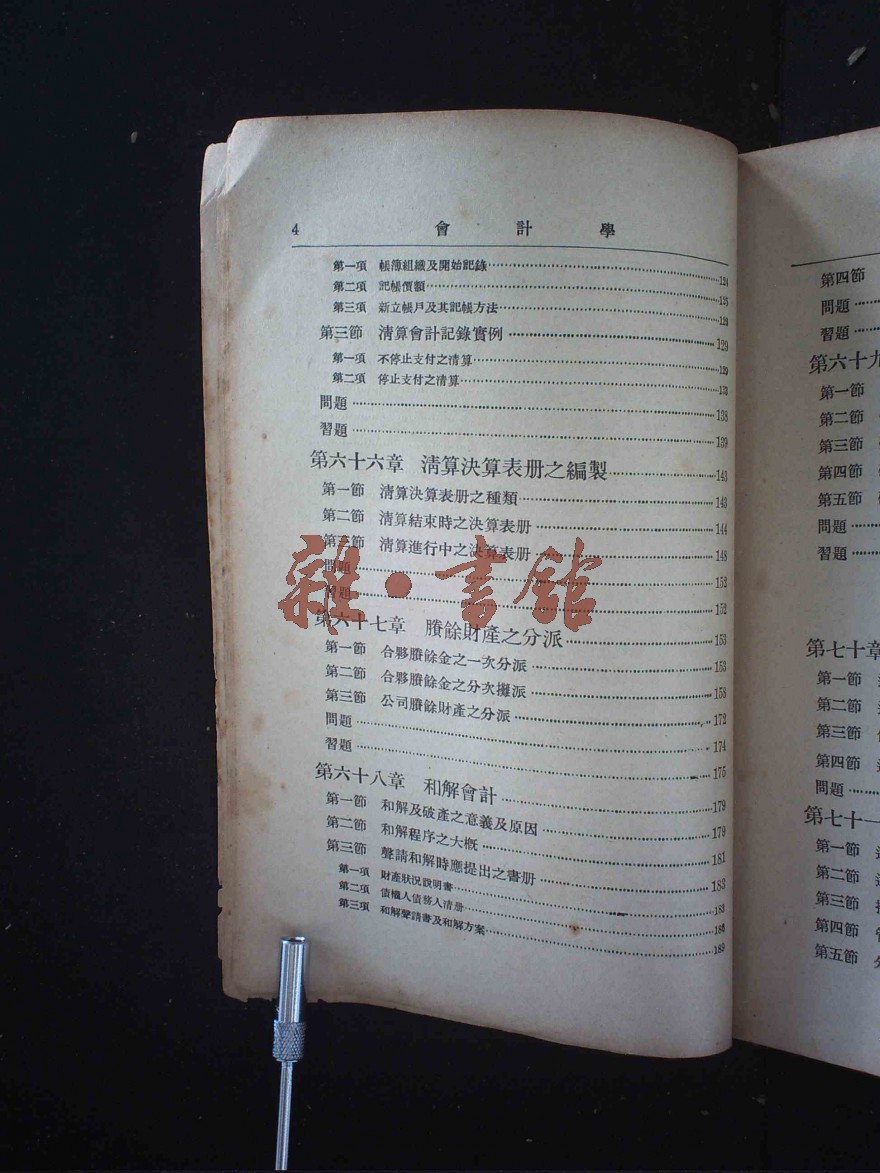 4 會計學
第一項 帳簿組織及開始記錄 124
第二項 記帳價額 125
第三項 新立帳戶及其記帳方法 128
第三節 淸算會計記錄實例 129
第一項 不停止支付之淸算 129
第二項 停止支付之淸算 133
問題 138
習題 139
第六十六章 淸算決算表册之編製 143
第一節 淸算決算表册之種類 143
第二節 淸算結束時之決算表册 144
第三節 淸算進行中之決算表册 148
問題 152
習題 152
第六十七章 賸餘財產之分派 153
第一節 合夥賸餘金之一次分派 153
第二節 合夥賸餘金之分次攤派 158
第三節 公司賸餘財產之分派 172
問題 174
習題 175
第六十八章 和解會計 179
第一節 和解及破產之意義及原因 179
第二節 和解程序之大槪 181
第三節 聲請和解時應提出之書册 183
第一項 財產狀況說明書 183
第二項 債權人債務人淸册 186
第三項 和解聲請書及和解方案 189
雜·書館
第四節
問題
習題
第六十九
第一節
第二節
第三節
第四節
第五節
問題
習題
第七十章
第一節
第二節
第三節
第四節
問題
第七十一
第一節
第二節
第三節
第四節
第五節